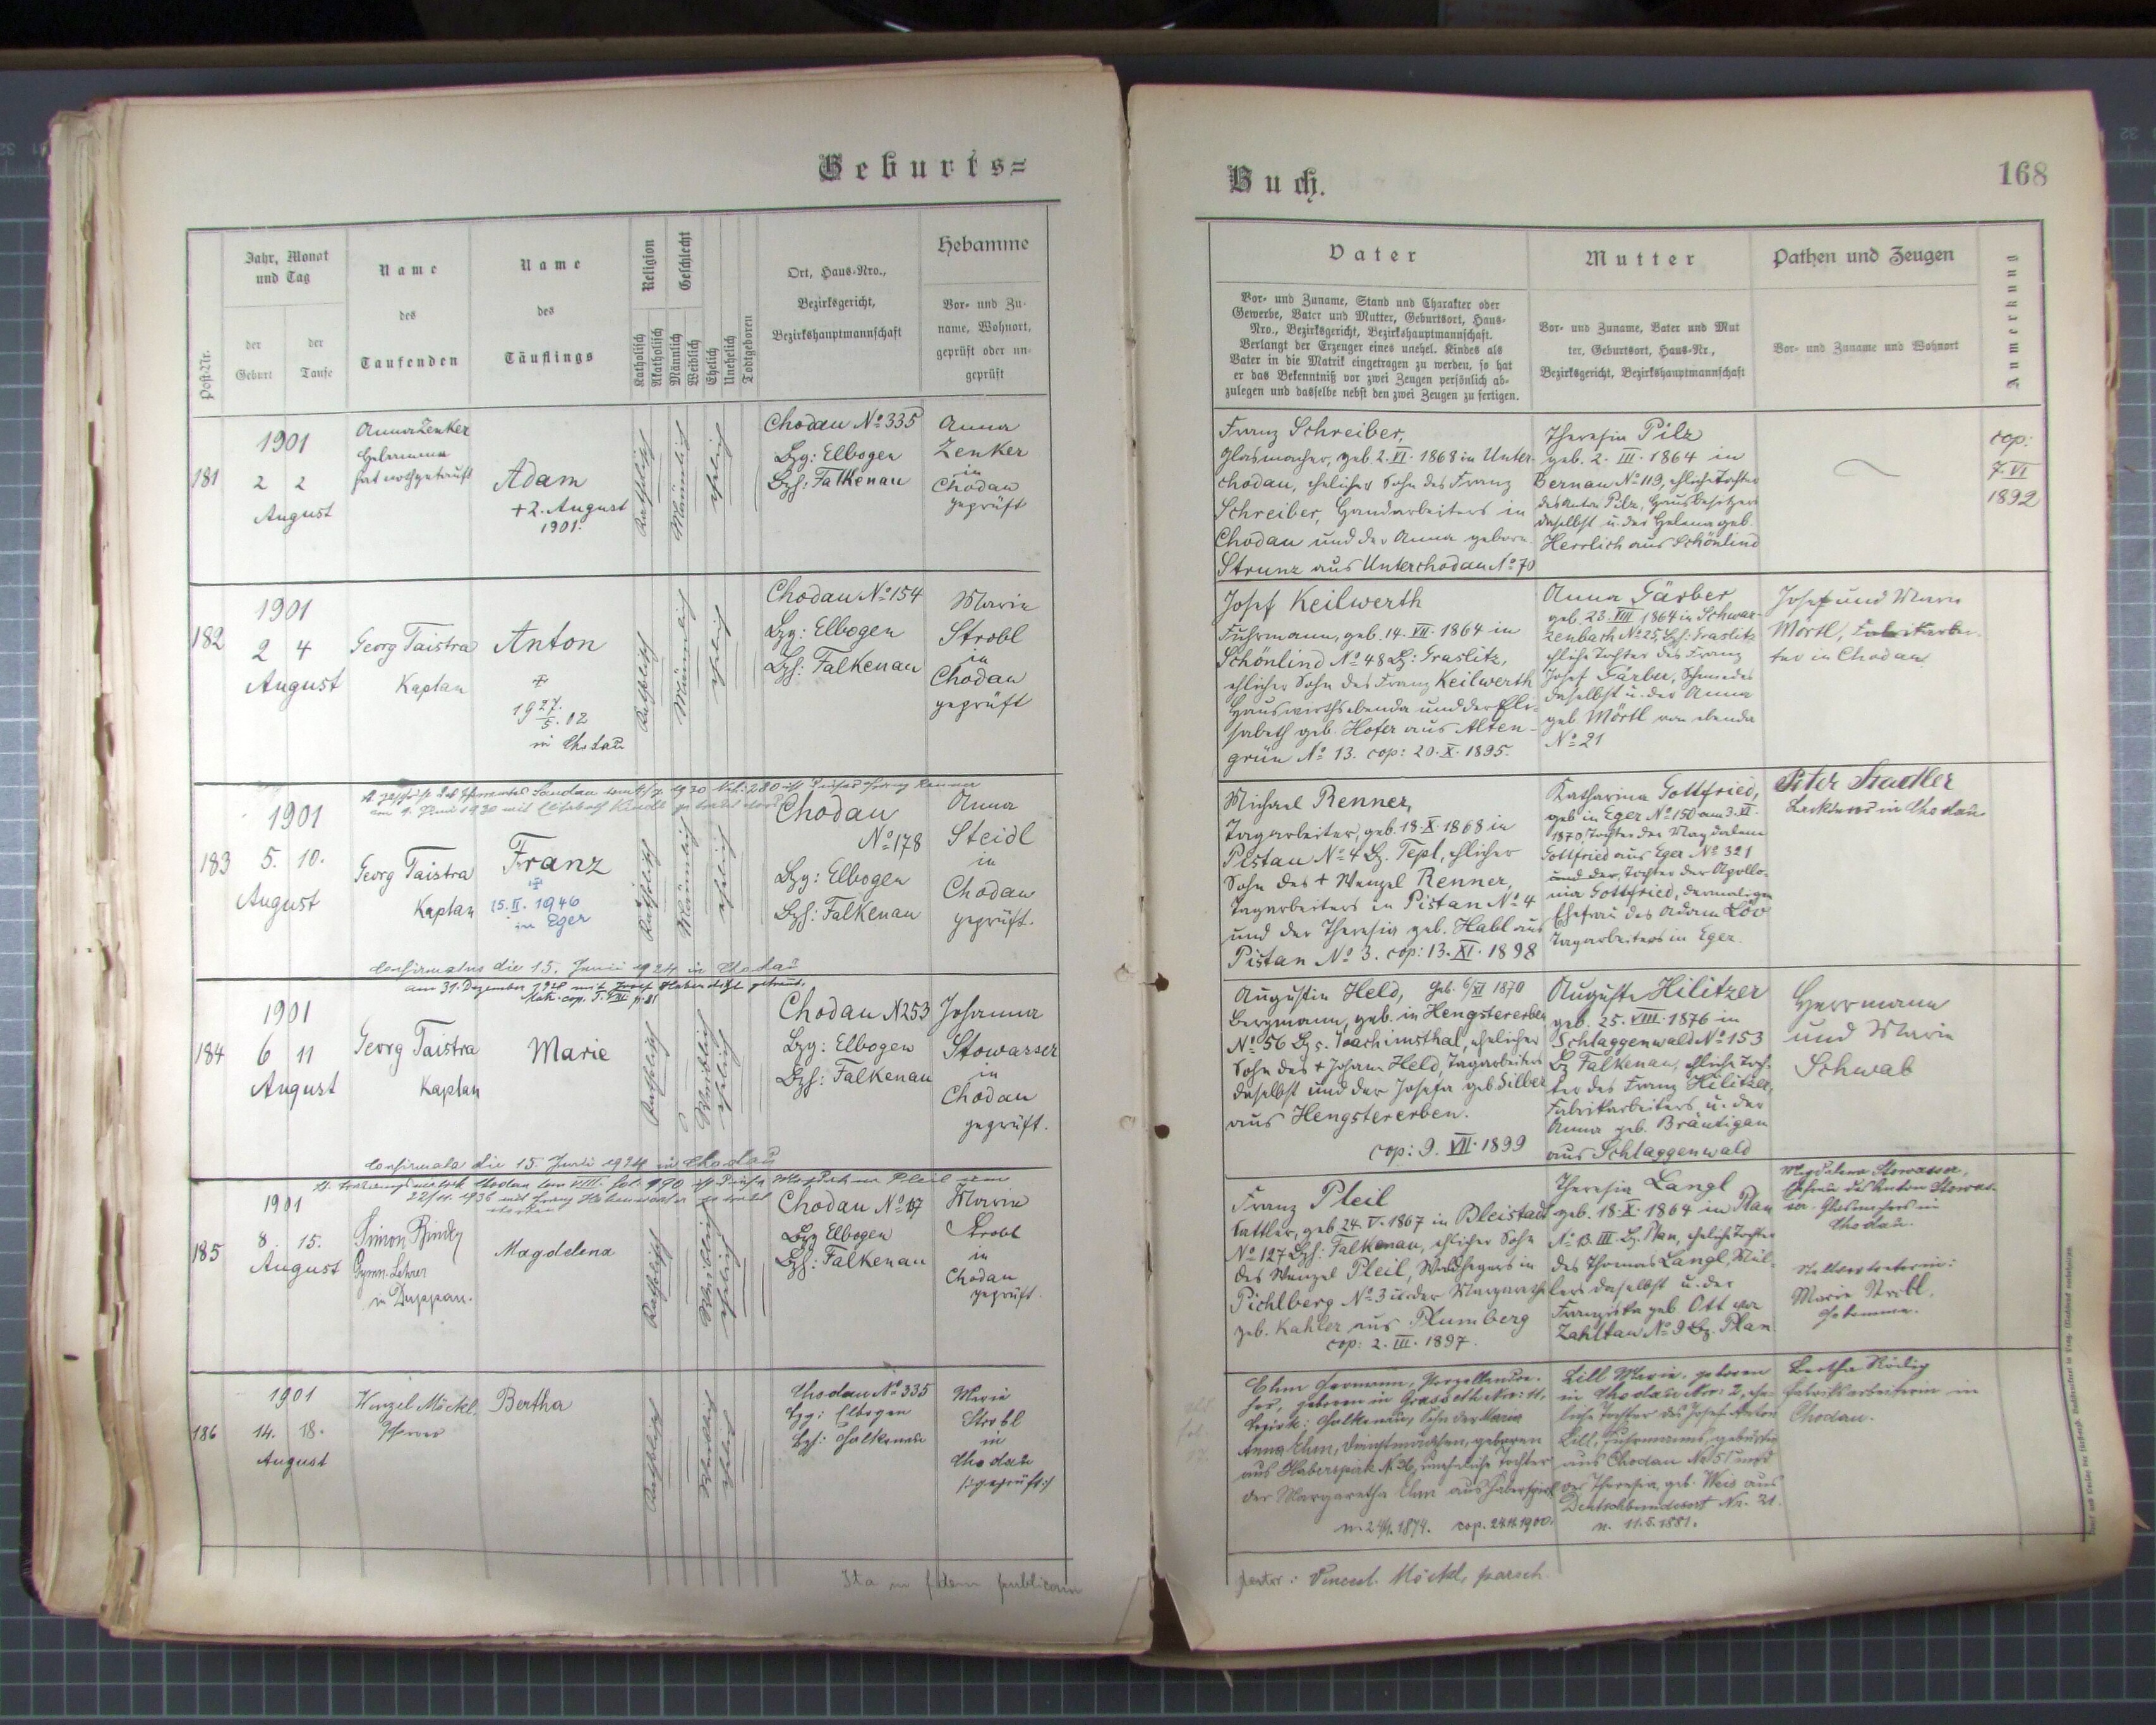 Geburts=
Post-Nr.
Jahr, Monat
und Tag
der
Geburt
der
Taufe
Name
des
Taufenden
Name
des
Täuflings
Religion
Katholisch
Akatholisch
Geschlecht
Männlich
Weiblich
Ehelich
Unehelich
Todtgeboren
Ort, Haus-Nro.,
Bezirksgericht,
Bezirkshauptmannschaft
Hebamme
Vor- und Zu-
name, Wohnort,
geprüft oder un-
geprüft
181
1901
2 2
August
Anna Zenker
Hebamme
hat nothgetauft
Adam
+ 2. August
1901.
Katholisch
Männlich
ehelich
Chodau No 335
Bzg: Elbogen
Bzh: Falkenau
Anna
Zenker
in
Chodau
geprüft
182
1901
2 4
August
Georg Taistra
Kaplan
Anton
in Chodau
Katholisch
Männlich
ehelich
Chodau No 154
Bzg: Elbogen
Bzh: Falkenau
Marie
Strobl
in
Chodau
geprüft
183
1901
5. 10.
August
Georg Taistra
Kaplan
Franz
15. II. 1946
in Eger
Katholisch
Männlich
ehelich
Chodau
No 178
Bzg: Elbogen
Bzh: Falkenau
Anna
Steidl
in
Chodau
geprüft.
Confirmatus die 15. Junii 1924 in Chodau
am 31. Dezember 1928 mit Josef
184
1901
6 11
August
Georg Taistra
Kaplan
Marie
Katholisch
Weiblich
ehelich
Chodau N 253
Bzg: Elbogen
Bzh: Falkenau
Johanna
Stowasser
in
Chodau
geprüft.
Confirmata die 15. Junii 1924 in Chodau
185
1901
8. 15.
August
Simon
Gymn. Lehrer
in Duppau.
Magdalena
Katholisch
Weiblich
ehelich
Chodau No 17
Bzg Elbogen
Bzh: Falkenau
Marie
Strobl
in
Chodau
geprüft.
186
1901
14. 18.
August
Wenzel Möckl.
Pfarrer
Bertha
Katholisch
Weiblich
ehelich
Chodau No 335
Bzg: Elbogen
Bzh: Falkenau
Marie
Strobl
in
Chodau
/:geprüft:/
Ita in fidem publicam
Buch.
168
Vater
Vor- und Zuname, Stand und Charakter oder
Gewerbe, Vater und Mutter, Geburtsort, Haus-
Nro., Bezirksgericht, Bezirkshauptmannschaft.
Verlangt der Erzeuger eines unehel. Kindes als
Vater in die Matrik eingetragen zu werden, so hat
er das Bekenntniß vor zwei Zeugen persönlich ab-
zulegen und dasselbe nebst den zwei Zeugen zu fertigen.
Mutter
Vor- und Zuname, Vater und Mut
ter, Geburtsort, Haus-Nr.,
Bezirksgericht, Bezirkshauptmannschaft
Pathen und Zeugen
Vor- und Zuname und Wohnort
Anmerkung
Franz Schreiber,
Glasmacher, geb. 2. VI. 1868 in Unter-
chodau, ehelicher Sohn des Franz
Schreiber, Handarbeiters in
Chodau und der Anna geborn.
Strunz aus Unterchodau No 70
Theresia Pilz
geb. 2. III. 1864 in
Bernau No 119, eheliche Tochter
des Anton Pilz, Hausbesitzers
daselbst u. der Helena geb.
Herrlich aus Schönlind
cop:
7. VI
1892
Josef Keilwerth
Fuhrmann, geb. 14. VII. 1864 in
Schönlind No 48 Bz: Graslitz,
ehlicher Sohn des Franz Keilwerth
Hauswirths ebenda und der Eli-
sabeth geb. Hofer aus Alten-
grün No 13. cop: 20. X. 1895.
Anna Gärber
geb. 23. VIII 1864 in Schwar-
zenbach No 25, Bz: Graslitz
ehliche Tochter des Franz
Josef Gärber, Schmiedes
daselbst u. der Anna
geb. Mörtl von ebenda
No 21
Josef und Marie
Mörtl, Fabrikarbei-
ter in Chodau
Michael Renner,
Tagarbeiter, geb. 18. X. 1868 in
Pistau No 4 Bz. Tepl, ehlicher
Sohn des + Wenzel Renner,
Tagarbeiters in Pistau No 4
und der Theresia geb. Habl aus
Pistau No 3. cop: 13. XI. 1898
Katharina Gottfried,
geb in Eger No 150 am 3. VI.
1870, Tochter der Magdalena
Gottfried aus Eger No 321
und der, Tochter der Apollo-
nia Gottfried, dermaligen
Ehefrau des Adam Löv
Tagarbeiters in Eger.
Peter Stadler
in Chodau.
Augustin Held, geb. 6/XI 1870
Bergmann, geb. in Hengstererben
No 56 Bz. Joachimsthal, ehelicher
Sohn des + Johann Held, Tagarbeiters
daselbst und der Josefa geb Silber
aus Hengstererben.
cop: 9. VII. 1899
Auguste Hilitzer
geb. 25. VIII. 1876 in
Schlaggenwald No 153
Bz Falkenau, ehliche Toch-
ter des Franz Hilitzer,
Fabrikarbeiters u. der
Anna geb. Bräutigam
aus Schlaggenwald
Herrmann
und Marie
Schwab
Franz Pleil
Sattler, geb. 24. V. 1867 in Bleistadt
No 127 Bzh: Falkenau, ehlicher Sohn
des Wenzel Pleil, Waldhegers in
Pichlberg No 3 u. der Margaretha
geb. Kahler aus Plumberg
cop: 2. III. 1897.
Theresia Langl
geb. 18. X. 1864 in Plan
No 13 III. Bz. Plan, eheliche Tochter
des Thomas Langl, Mül-
lers daselbst u. der
Franziska geb. Ott von
Zahltau No 9 Bz. Plan
Magdalena Stowasser,
Ehefrau des Anton Stowas-
ser Glasmachers in
Chodau.
Stellvertreterin:
Marie Strobl,
Hebamme.
Ehm Hermann, Porzellandre-
her, geboren in Grasseth Nr: 11,
Bezirk: Falkenau, Sohn der Maria
Anna Ehm, Dienstmädchen, geboren
aus Haberspirk N. 36, uneheliche Tochter
der Margaretha Ehm aus Haberspirk
cop. 24.11.1900.
Lill Marie, geboren
in Chodau Nr: 2, ehe-
liche Tochter des Josef Anton
Lill, Fuhrmanns, gebürtig
aus Chodau No 51 und
der Theresia, geb. Weis aus
Nr. 21.
n. 11.5.1881.
Bertha Rödig
Fabrikarbeiterin in
Chodau.
Vincent. Möckl, paroch.